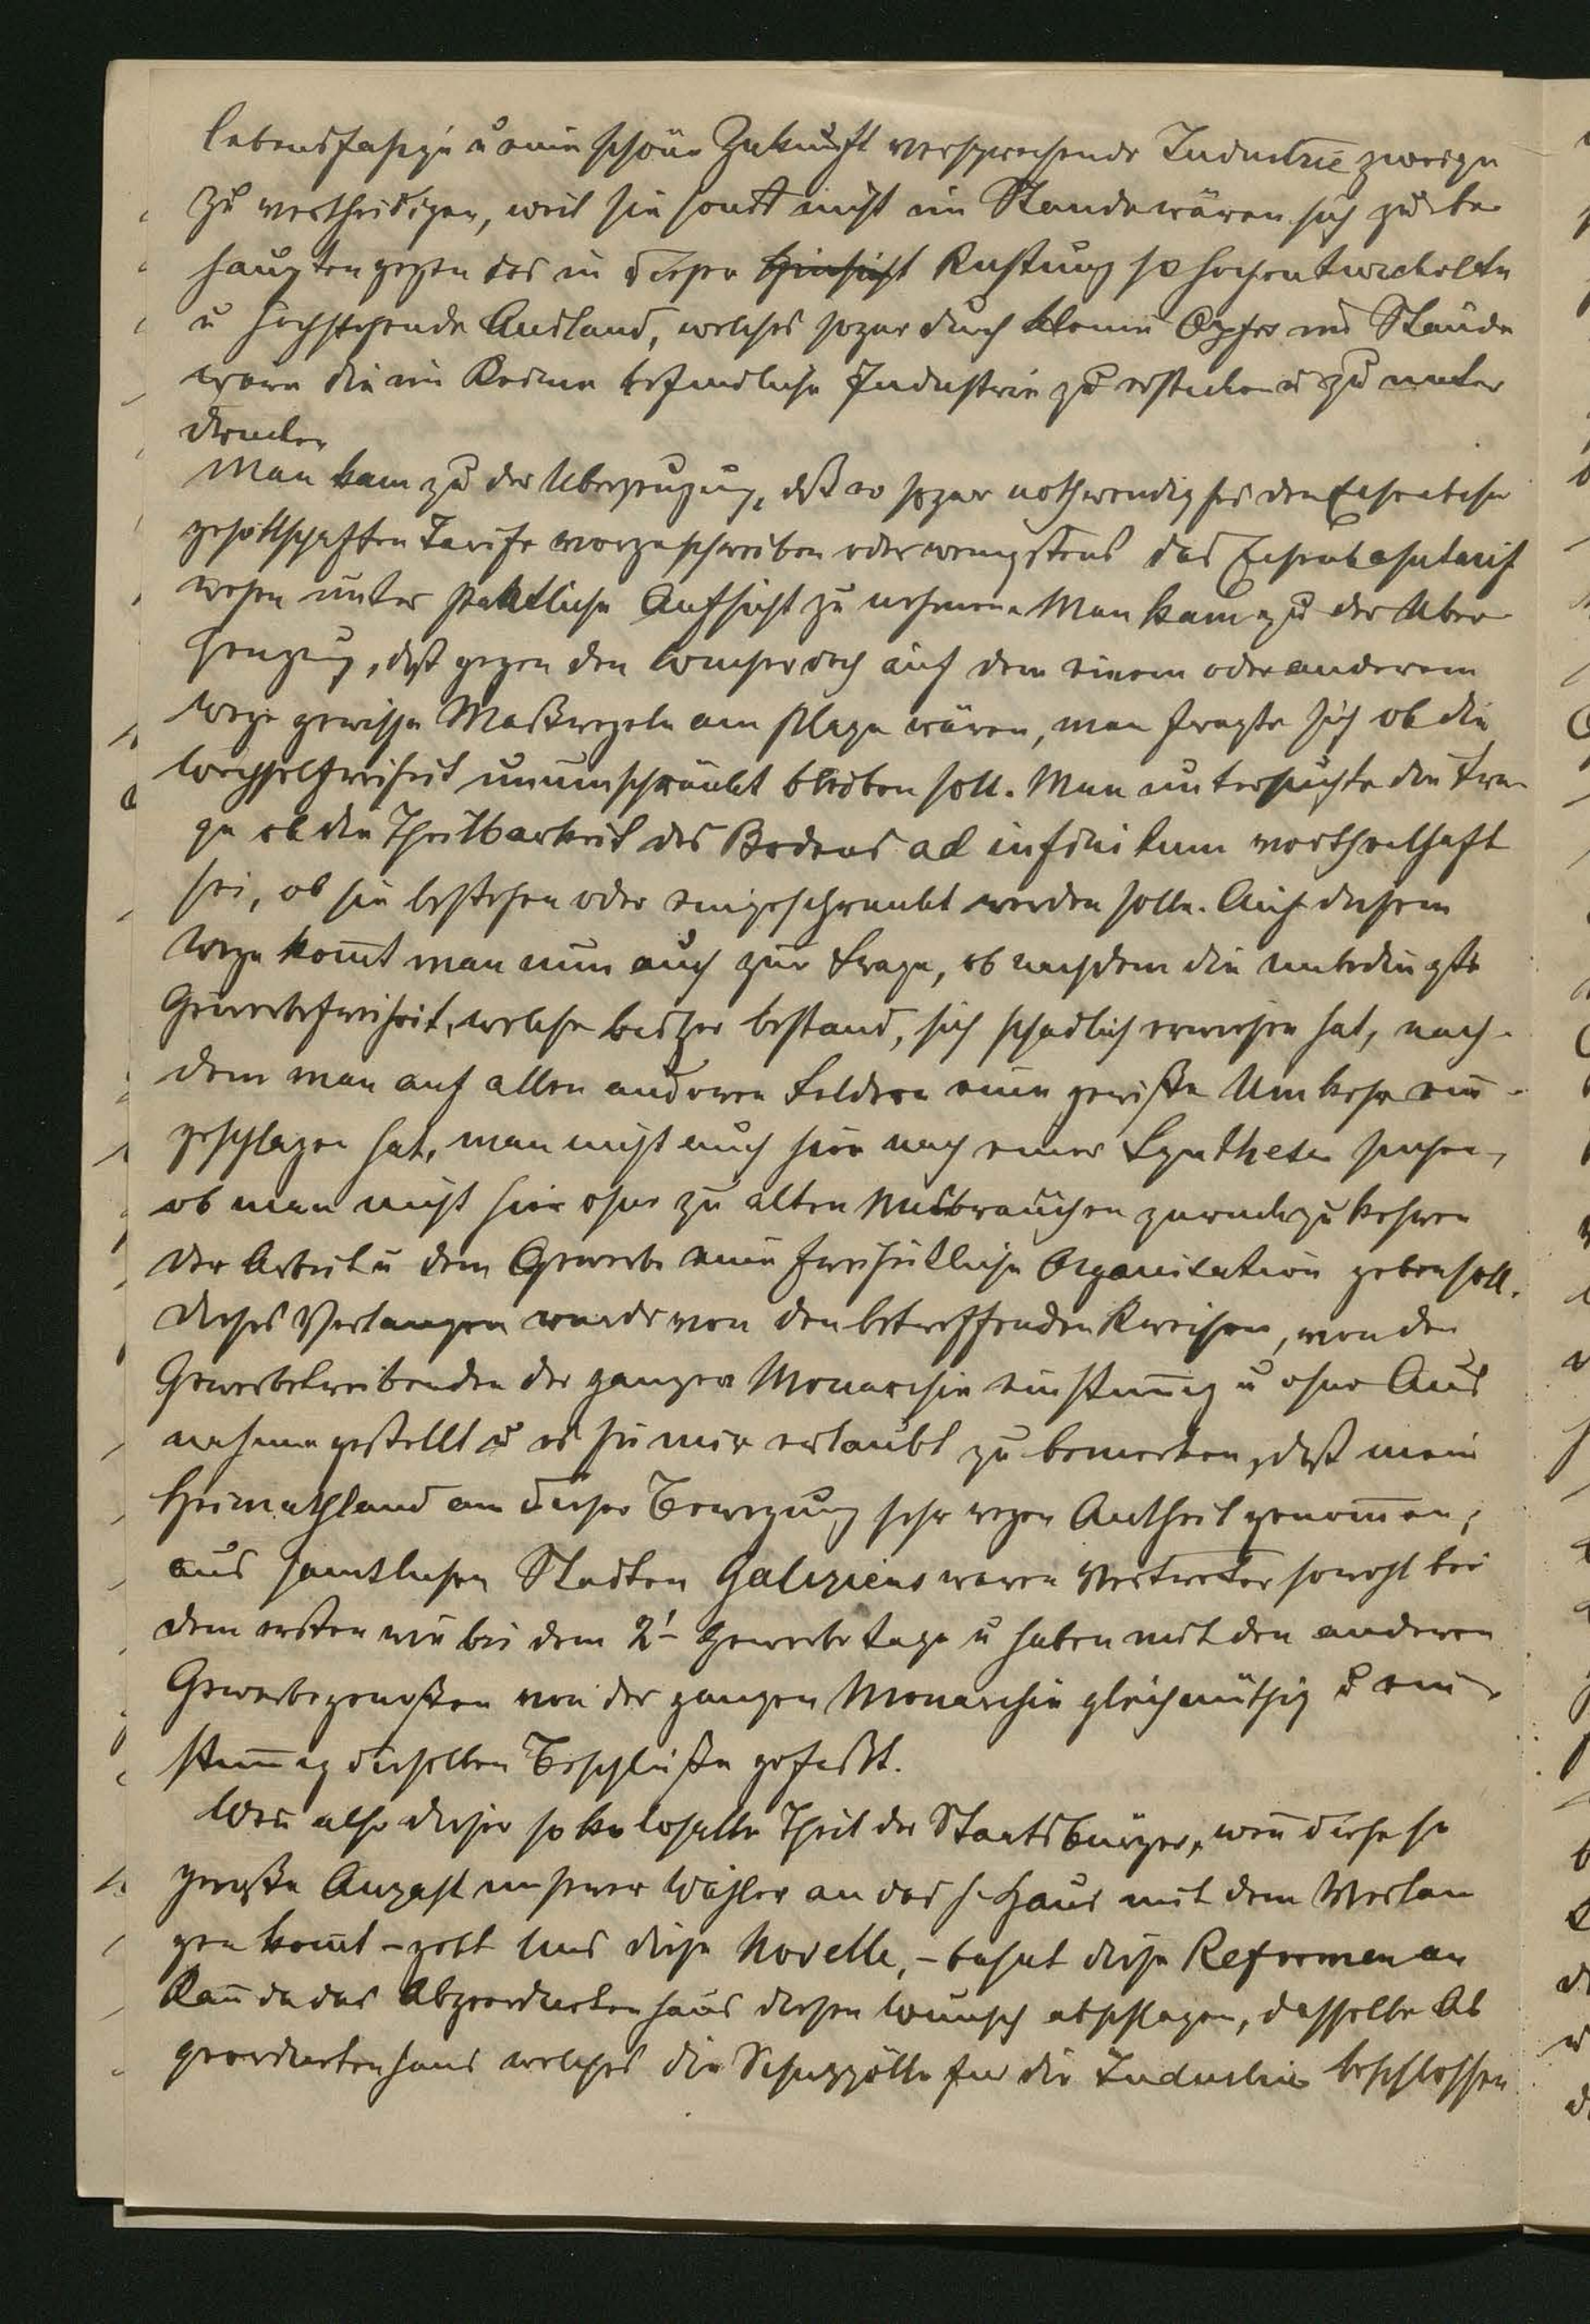 lebensfahige u eine schöne Zukunft versprechende Industrie zweige
zu vertheidigen, weil sie sonst nicht im Stande wären sich zu be
haupten gegen das in dieser Hinsicht Rustung so hochentwickelte
u hochstehende Ausland, welches sogar durch kleine Opfer im Stande
ware die im Keime befindliche Industrie zu ersticken u zu unter
drucken
Man kam zu der Uberzeugung, daß es sogar nothwendig sei den Eisenbahn
gesellschaften Tarife vorzuschreiben oder wenigstens das Eisenbahntarif
wesen unter staatliche Aufsicht zu nehmen. Man kam zu der Uber
zeugung, daß gegen den Wucher doch auf dem einem oder anderem
Wege gewisse Maßregeln am Platze wären, man fragte sich ob die
Wechselfreiheit unumschränkt bleiben soll. Man untersuchte die Fra
ge ob die Theilbarkeit des Bodens ad infinitum vortheilhaft
sei, ob sie bestehen oder eingeschrankt werden solle. Auf diesem
Wege kom̅t man nun auch zur Frage, ob nachdem die unbedingte
Gewerbefreiheit, welche bisher bestand, sich schadlich erwiesen hat, nach-
dem man auf allen anderen Feldern eine gewiße Umkehr ein-
geschlagen hat, man nicht auch hier nach einer Synthese suchen,
ob man nicht hier ohne zu alten Misbrauchen zuruckzukehren
der Arbeit u dem Gewerbe eine freiheitliche Organisation geben soll.
Dieses Verlangen wurde von den betreffenden Kreisen, von den
Gewerbetreibenden der ganzen Monarchie einstim̅ig u ohne Aus
nahme gestellt u es sei mir erlaubt zu bemerken, daß mein
Heimathland an dieser Bewegung sehr regen Antheil genom̅en;
aus samtlichen Stadten Galiziens waren Vertreter sowohl bei
dem ersten wie bei dem 2t- Gewerbetage u haben mit den anderen
Gewerbegenoßen von der ganzen Monarchie gleichmüthig u ein-
stim̅ig dieselben Beschlüße gefaßt.
Wen̅ also dieser so kolossale Theil der Staatsbürger, wen̅ diese so
große Anzahl unserer Wähler an das h. Haus mit dem Verlan
gen kom̅t – gebt uns diese Novelle, – bahnt diese Reformen an
Kan̅ da das Abgeordnetenhaus diesen Wunsch abschlagen, dasselbe Ab
geordnetenhaus welches die Schutzzölle fur die Industrie beschlossen